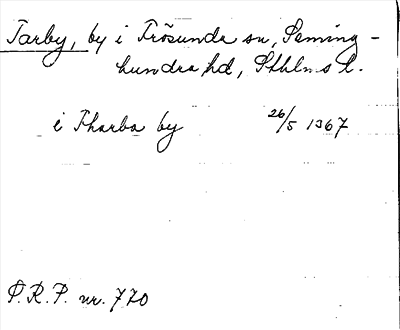 Tarby, by i Frösunda sn, Seming-
hundra hd, Sthlms l.
i Tharba by 26/5 1367
P.R.P. nr. 770